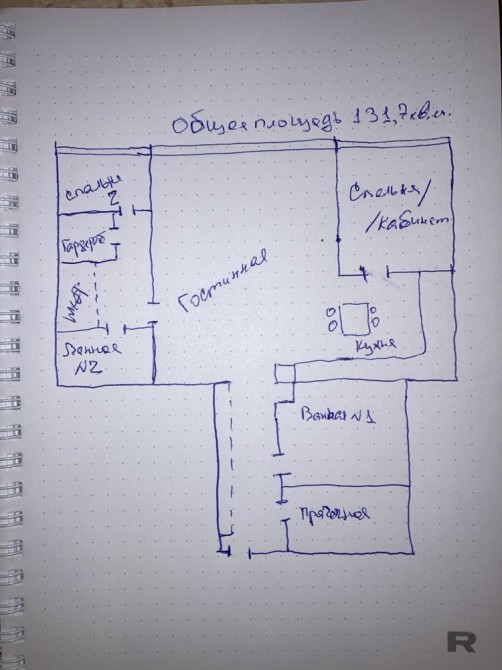 Общая площадь 131,7кв.м.
Спальня
2
Гардероб
шкаф
Ванная
N2
Гостинная
Спальня/
/кабинет
Кухня
Ванная N1
Прачечная
R